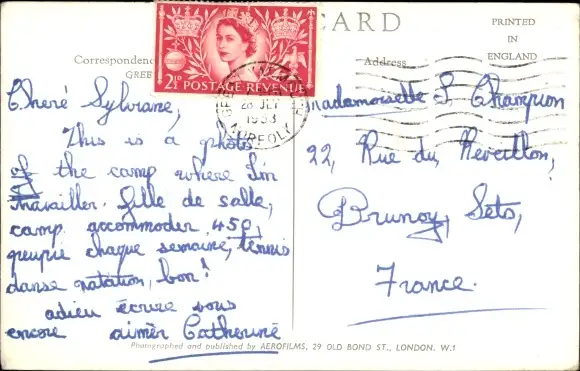 CARD
PRINTED
IN
ENGLAND
Correspondence
GREE
Address
2½D POSTAGE REVENUE
GREAT
28 JLY
1953
NORFOLK
Cheré Sylviane,
This is a photo
of the camp where I'm
travailler. fille de salle,
camp accommoder 450,
groupie chaque semaine, tennis
danse natation, bon!
adieu écrire vous
encore aimèr Catherine
Mademoiselle S. Champion
22, Rue du Reveillon,
Brunoy, Seto,
France.
Photographed and published by AEROFILMS, 29 OLD BOND ST., LONDON. W.1